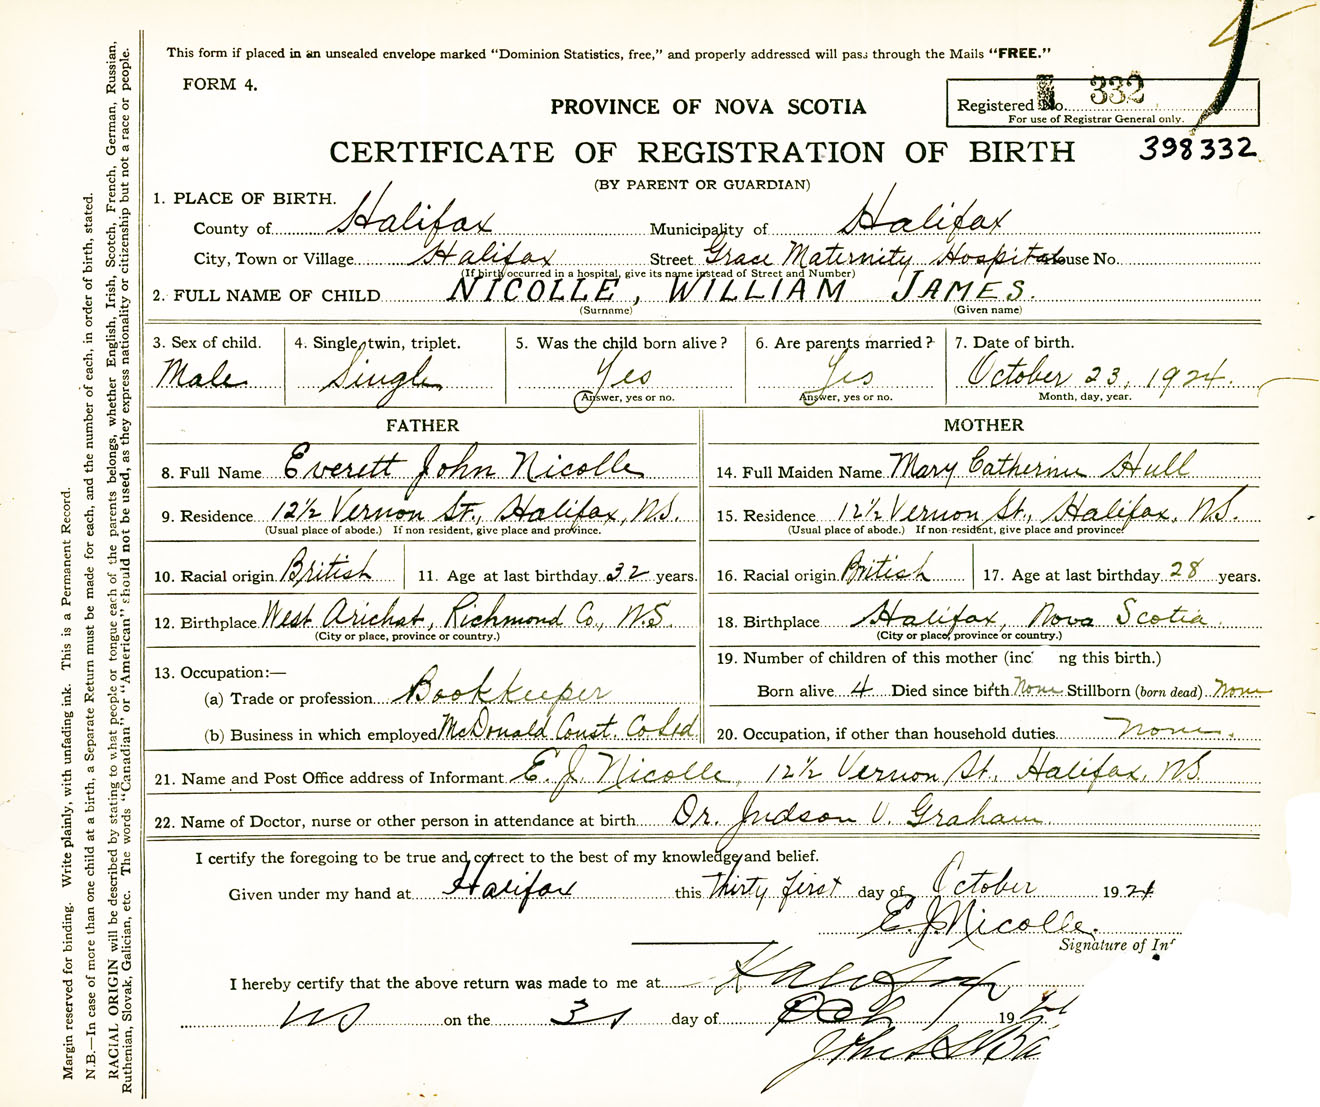 This form if placed in an unsealed envelope marked "Dominion Statistics, free," and properly addressed will pass through the Mails "FREE."
FORM 4.
Registered No. 332
For use of Registrar General only.
PROVINCE OF NOVA SCOTIA
CERTIFICATE OF REGISTRATION OF BIRTH 398332
(BY PARENT OR GUARDIAN)
1. PLACE OF BIRTH.
County of Halifax Municipality of Halifax
City, Town or Village Halifax Street Grace Maternity Hospital House No.
(If birth occurred in a hospital, give its name instead of Street and Number)
2. FULL NAME OF CHILD NICOLLE, WILLIAM JAMES.
(Surname) (Given name)
3. Sex of child. 4. Single, twin, triplet. 5. Was the child born alive? 6. Are parents married? 7. Date of birth.
Male Single Yes Yes October 23, 1924.
Answer, yes or no. Answer, yes or no. Month, day, year.
FATHER MOTHER
8. Full Name Everett John Nicolle 14. Full Maiden Name Mary Catherine Hull
9. Residence 12½ Vernon St., Halifax, N.S. 15. Residence 12½ Vernon St., Halifax, N.S.
(Usual place of abode.) If non resident, give place and province. (Usual place of abode.) If non-resident, give place and province.
10. Racial origin British 11. Age at last birthday 32 years. 16. Racial origin British 17. Age at last birthday 28 years.
12. Birthplace West Arichat, Richmond Co., N.S. 18. Birthplace Halifax, Nova Scotia.
(City or place, province or country.) (City or place, province or country.)
13. Occupation:— 19. Number of children of this mother (inc ng this birth.)
(a) Trade or profession Bookkeeper Born alive 4 Died since birth None Stillborn (born dead) None
(b) Business in which employed McDonald Const. Co Ltd. 20. Occupation, if other than household duties None.
21. Name and Post Office address of Informant E. J. Nicolle, 12½ Vernon St. Halifax, N.S.
22. Name of Doctor, nurse or other person in attendance at birth Dr. Judson V. Graham
I certify the foregoing to be true and correct to the best of my knowledge and belief.
Given under my hand at Halifax this Thirty first day of October 1924
E. J. Nicolle.
Signature of Inf
I hereby certify that the above return was made to me at Halifax
NS on the 31 day of Oct 19 24
John
Margin reserved for binding. Write plainly, with unfading ink. This is a Permanent Record.
N.B.—In case of more than one child at a birth, a Separate Return must be made for each, and the number of each, in order of birth, stated.
RACIAL ORIGIN will be described by stating to what people or tongue each of the parents belongs, whether English, Irish, Scotch, French, German, Russian,
Ruthenian, Slovak, Galician, etc. The words "Canadian" or "American" should not be used, as they express nationality or citizenship but not a race or people.